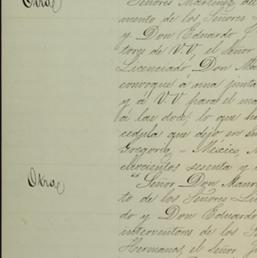 Otro
Señores Martinez
mento de los Señores
y Don Eduardo
tores de V.V, el Señor
Licenciado Don
convoque á una junta
y á V.V para el
á las doce; lo que
cedula que dejo en
Gregorio - México
ochocientos sesenta y
Otro
"Señor Don
to de los Señores
do y Don Eduardo
interventores de
Hermanos, el Señor